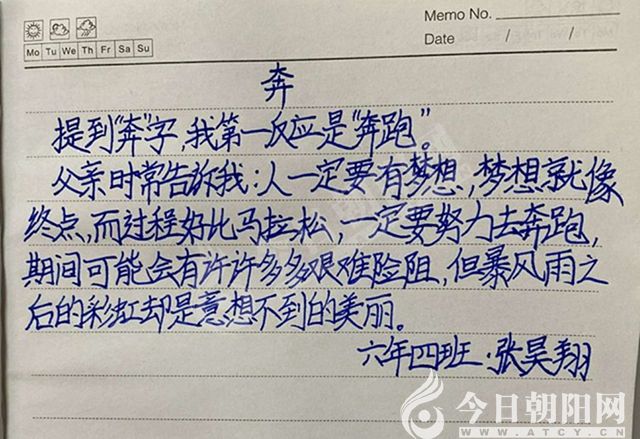 Memo No.
Mo Tu We Th Fr Sa Su
Date / /
奔
提到“奔”字，我第一反应是“奔跑”。
父亲时常告诉我：人一定要有梦想，梦想就像
终点，而过程好比马拉松，一定要努力去奔跑，
期间可能会有许许多多艰难险阻，但暴风雨之
后的彩虹却是意想不到的美丽。
六年四班·张昊翔
今日朝阳网
WWW.ATCY.CN